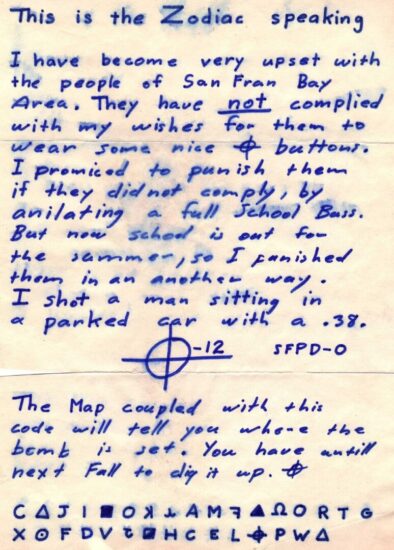 This is the Zodiac speaking
I have become very upset with
the people of San Fran Bay
Area. They have not complied
with my wishes for them to
wear some nice ⌖ buttons.
I promiced to punish them
if they did not comply, by
anilating a full School Buss.
But now school is out for
the summer, so I punished
them in an another way.
I shot a man sitting in
a parked car with a .38.
⌖-12 SFPD-0
The Map coupled with this
code will tell you where the
bomb is set. You have untill
next Fall to dig it up. ⌖
C Δ J I ■ O ꓘ ⅄ A M ꟻ ▲ Ω O R T G
X ⊙ F D V Ƹ ◪ H C E L ⌖ P W Δ